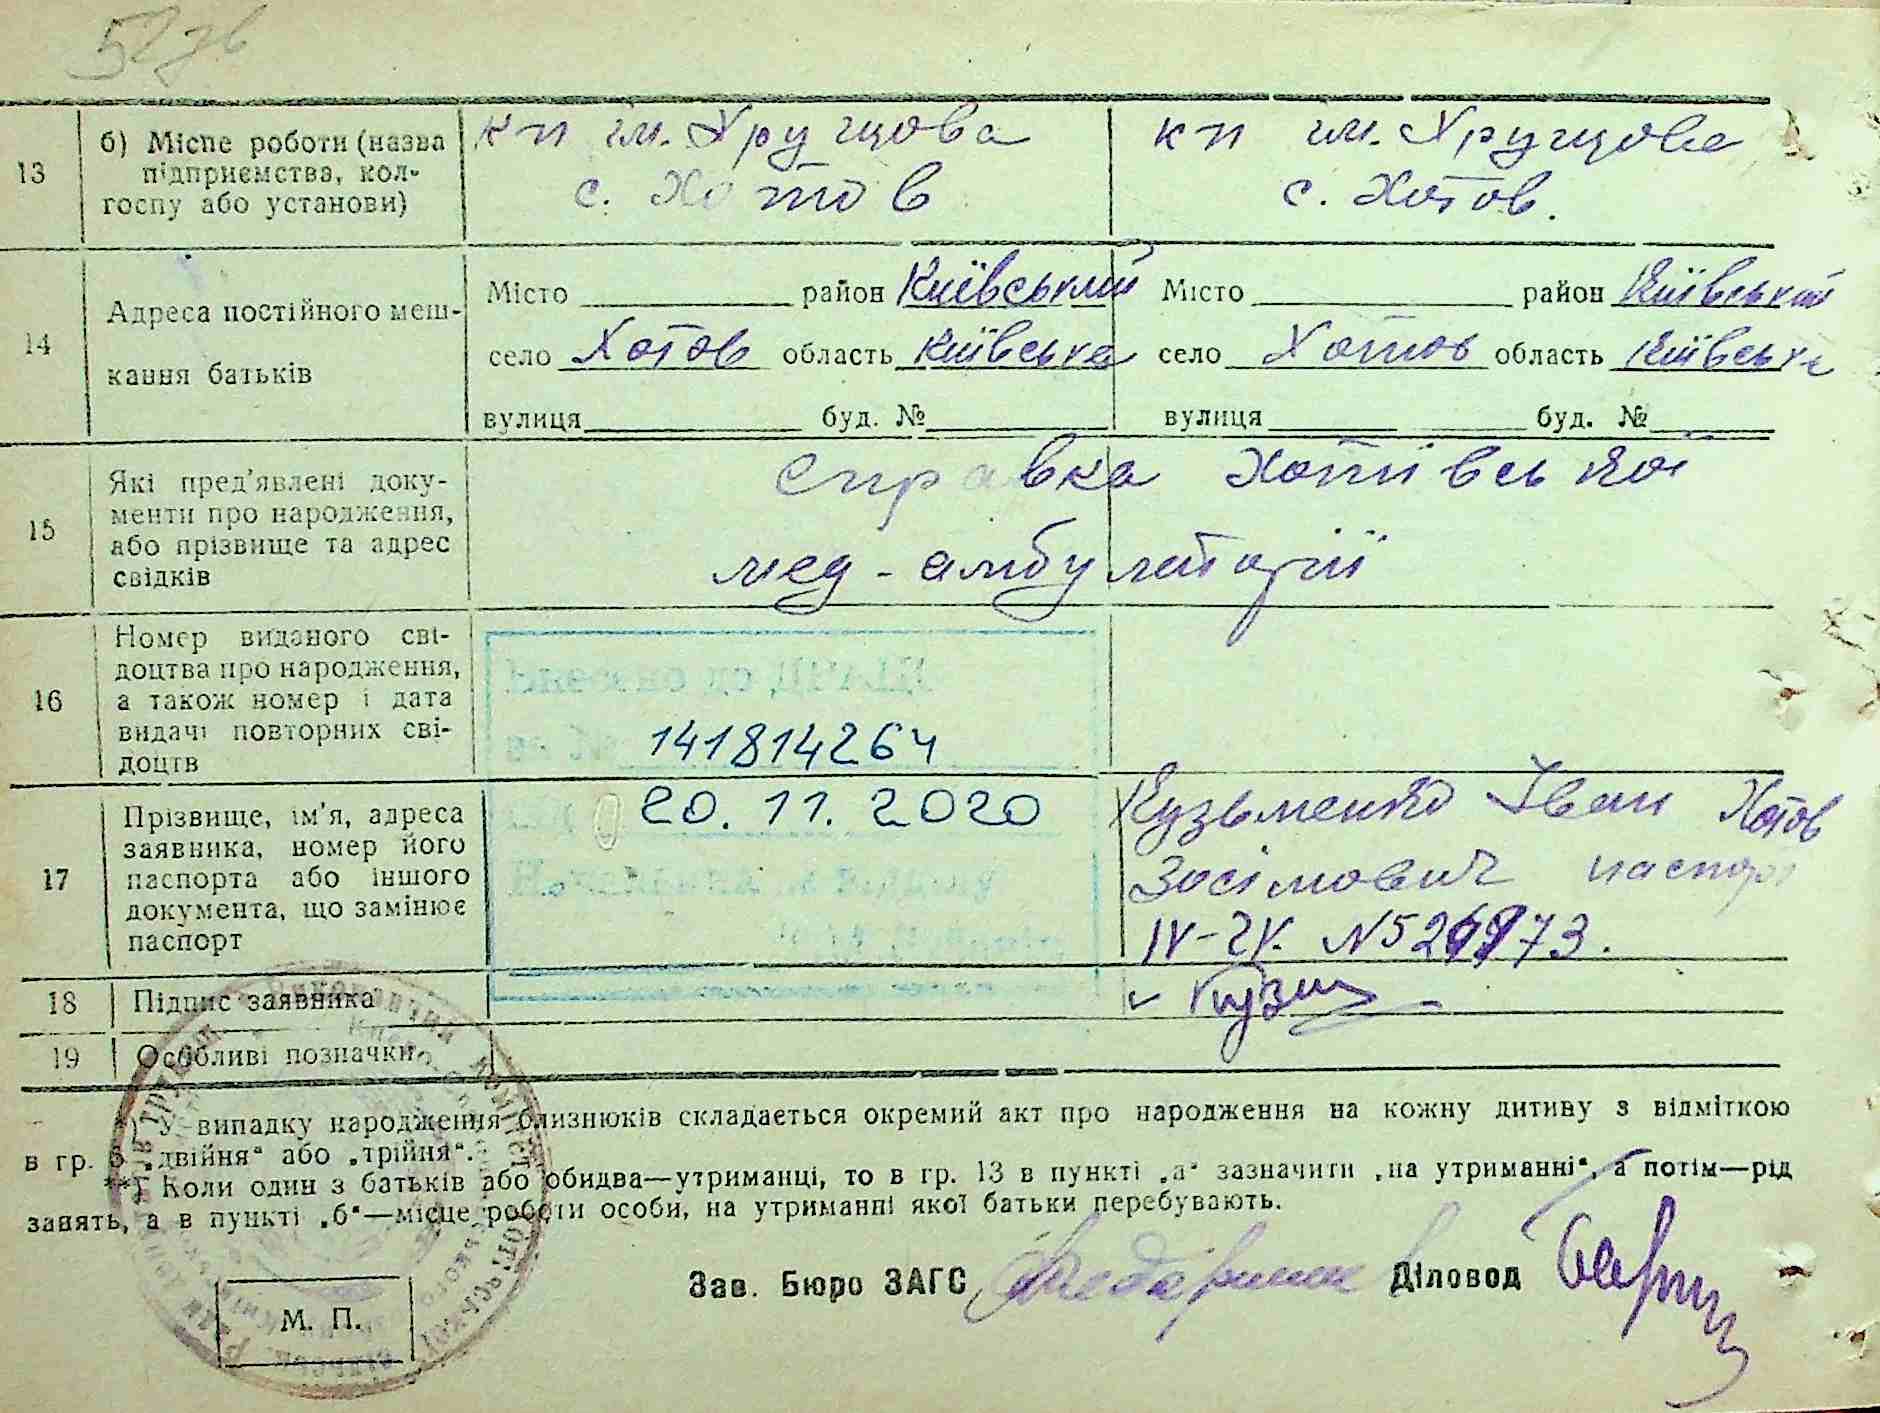 52зв
13
б) Місце роботи (назва
підприємства, кол-
госпу або установи)
кп ім. Хрущова
с. Хотов
кп ім. Хрущова
с. Хотов.
14
Адреса постійного меш-
кання батьків
Місто район Київський
село Хотов область Київська
вулиця буд. №
Місто район Київський
село Хотов область Київська
вулиця буд. №
15
Які пред'явлені доку-
менти про народження,
або прізвище та адрес
свідків
справка Хотівської
мед-амбулаторії
16
Номер виданого сві-
доцтва про народження,
а також номер і дата
видачі повторних сві-
доцтв
141814264
20.11.2020
17
Прізвище, ім'я, адреса
заявника, номер його
паспорта або іншого
документа, що замінює
паспорт
Кузьменко Іван Хотов
Зосімович паспорт
18
Підпис заявника
19
Особливі позначки
*) У випадку народження близнюків складається окремий акт про народження на кожну дитину з відміткою
в гр. 5 „двійня“ або „трійня“.
**) Коли один з батьків або обидва—утриманці, то в гр. 13 в пункті „а“ зазначити „на утриманні“, а потім—рід
занять, а в пункті „б“—місце роботи особи, на утриманні якої батьки перебувають.
Зав. Бюро ЗАГС Діловод
М. П.